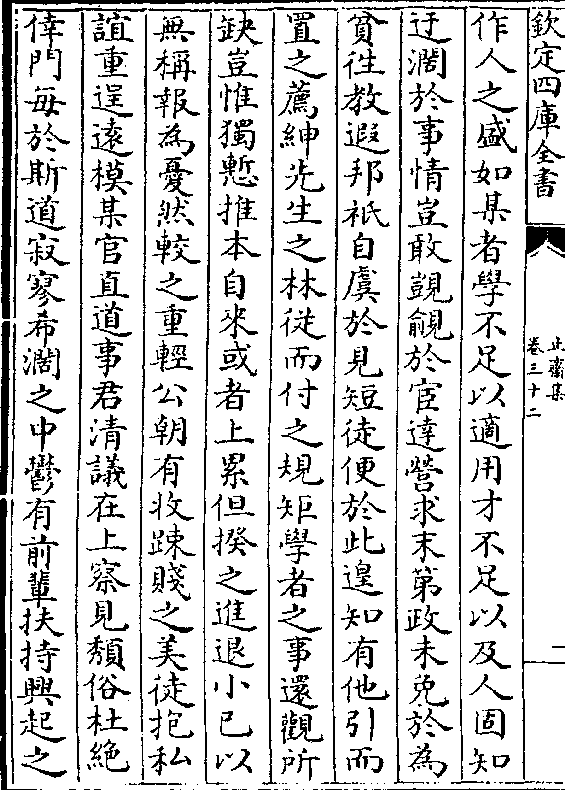 欽定四庫全書
止齋集
卷三十二
二
作人之盛如某者學不足以適用才不足以及人固知
迂濶於事情豈敢覬覦於宦達營求末第政未免於為
貧徃教遐邦祇自虞於見短徒便於此遑知有他引而
置之薦紳先生之林従而付之規矩學者之事還觀所
缺豈惟獨慙推本自來或者上累但揆之進退小已以
無稱報為憂然較之重輕公朝有收踈賤之美徒抱私
誼重逞逺模某官直道事君清議在上察見頽俗杜絶
倖門每於斯道寂寥希濶之中鬱有前輩扶持興起之